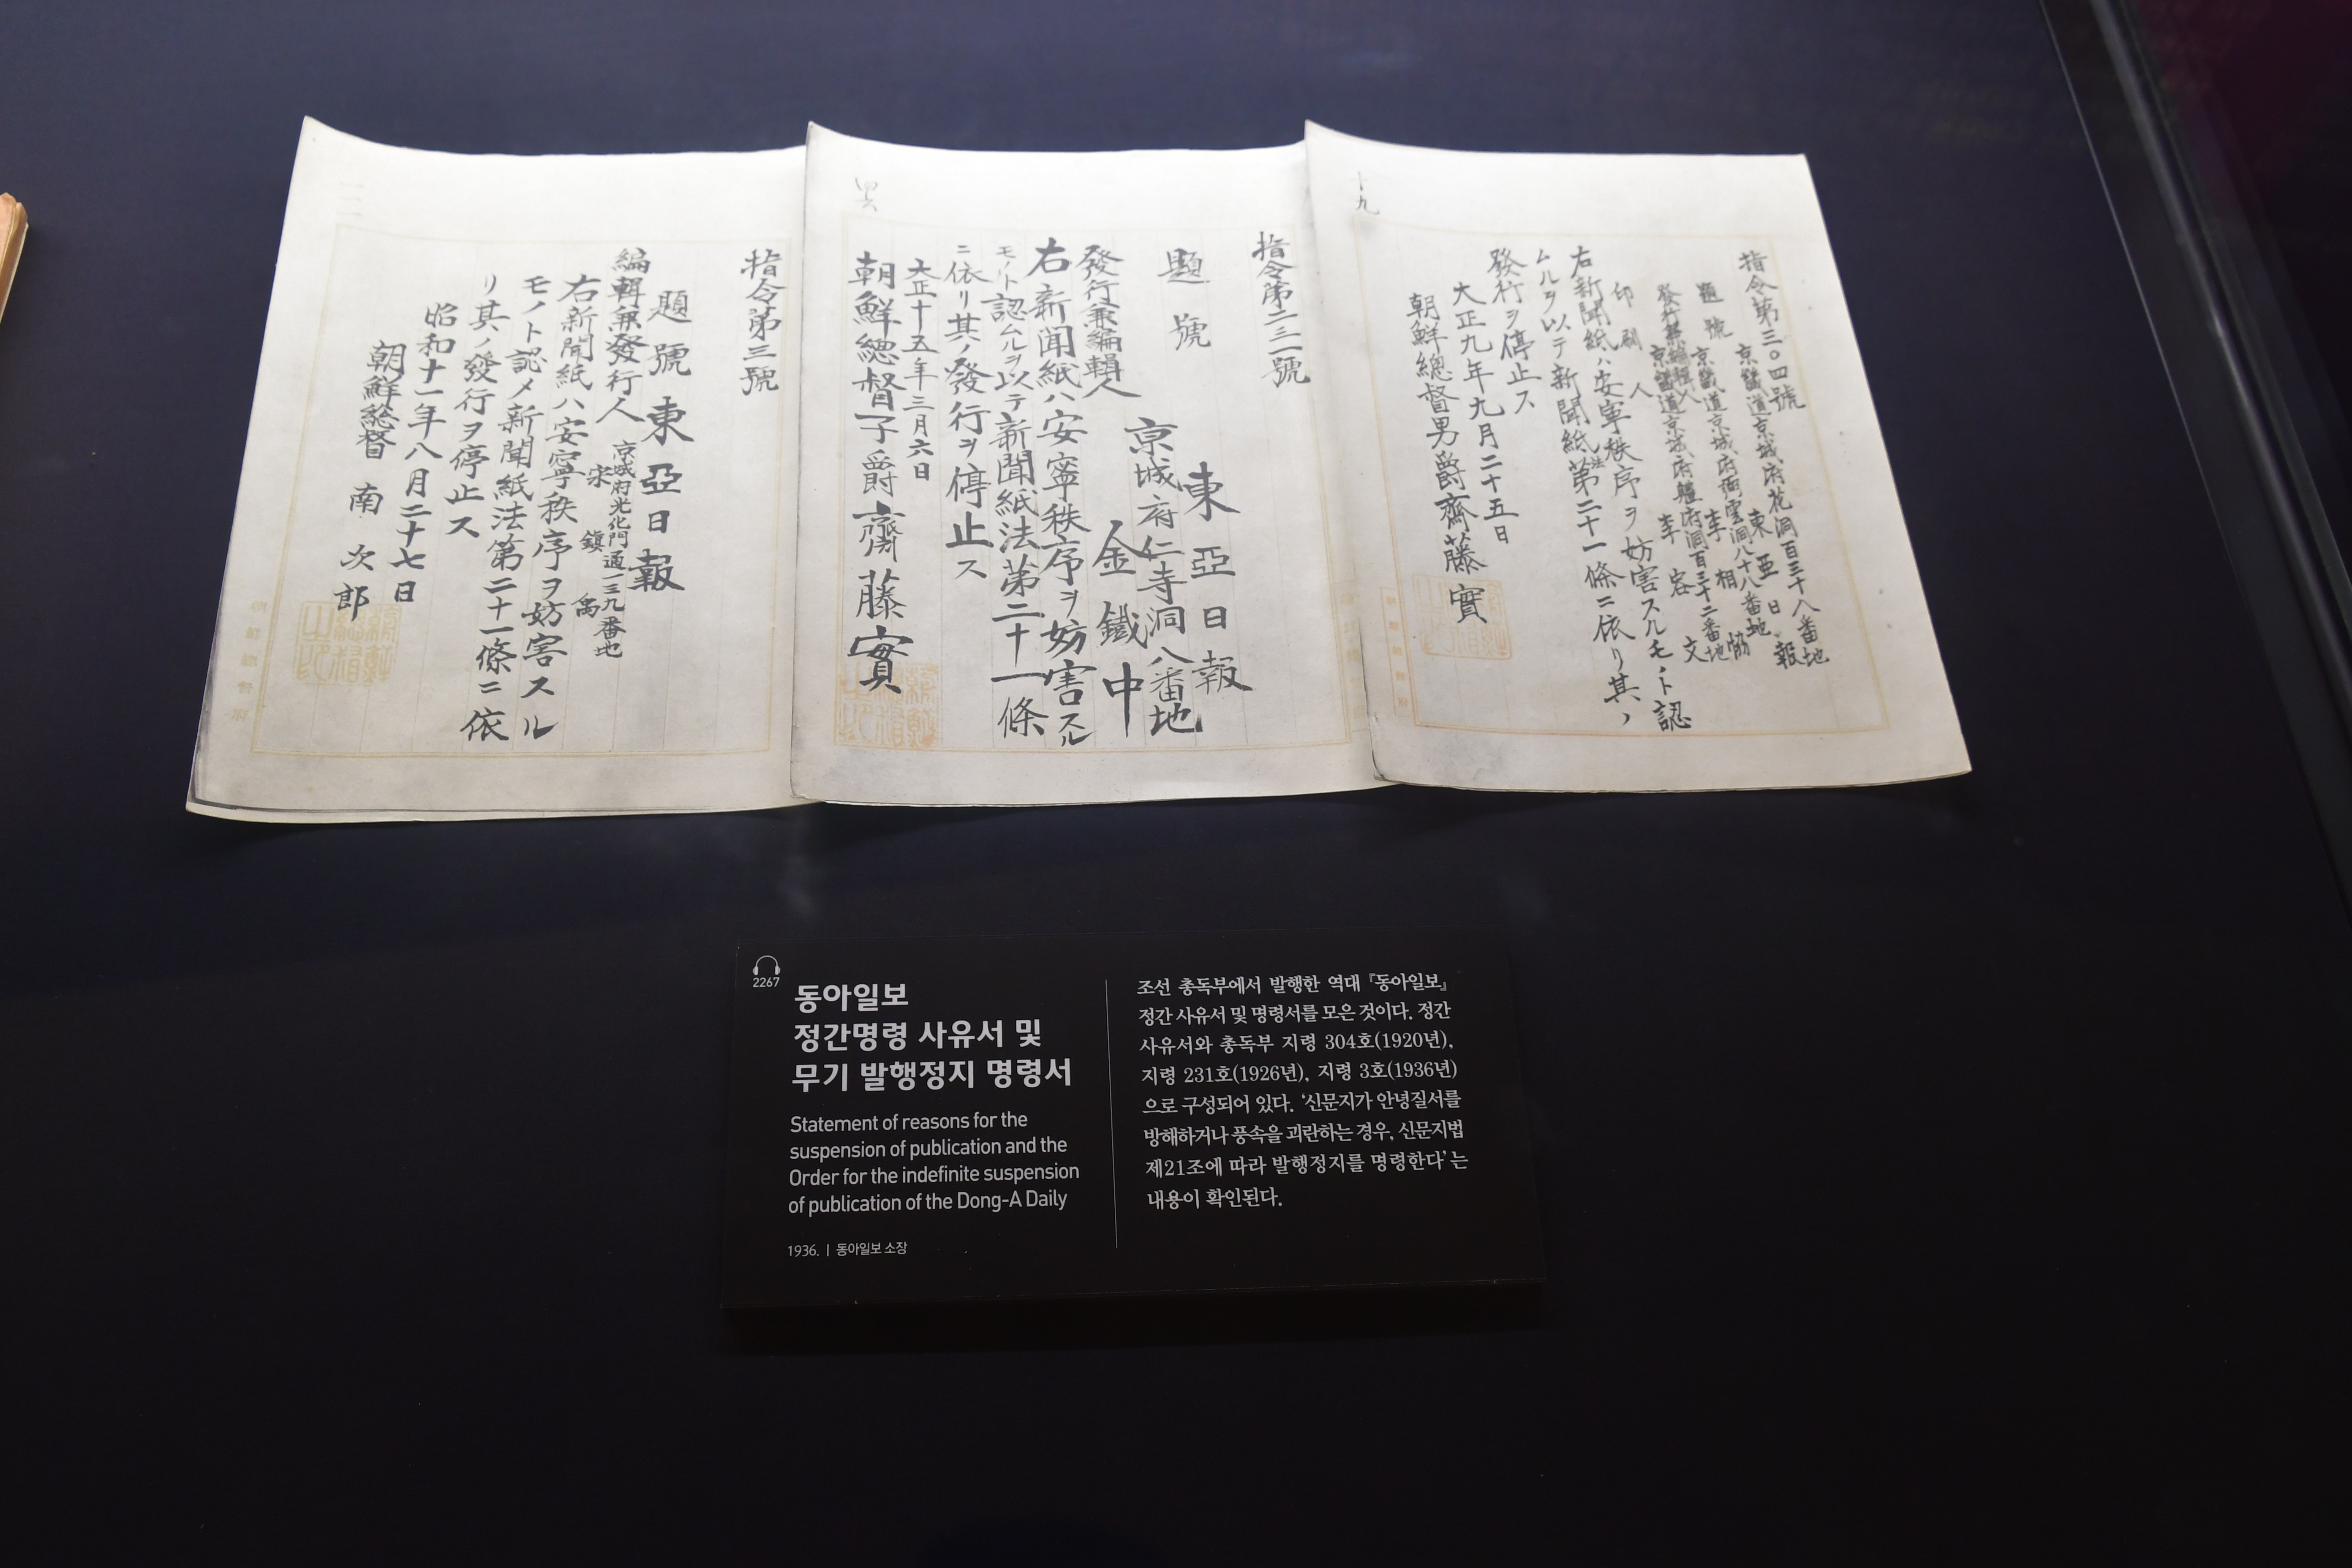 十九
指令第三〇四號
京畿道京城府花洞百三十八番地
題號 東亞日報
京畿道京城府齋雲洞八十八番地
發行兼編輯人 李相協
京畿道京城府魼府洞百三十二番地
印刷人 李容文
右新聞紙ハ安寧秩序ヲ妨害スルモノト認
ムルヲ以テ新聞紙法第二十一條ニ依リ其ノ
發行ヲ停止ス
大正九年九月二十五日
朝鮮總督男爵齋藤實
指令第二三一號
題號 東亞日報
京城府仁寺洞八番地
發行兼編輯人 金鐵中
右新聞紙ハ安寧秩序ヲ妨害スル
モノト認ムルヲ以テ新聞紙法第二十一條
ニ依リ其ノ發行ヲ停止ス
大正十五年三月六日
朝鮮總督子爵齋藤實
指令第三號
題號 東亞日報
京城府光化門通一三九番地
編輯兼發行人 宋鎭禹
右新聞紙ハ安寧秩序ヲ妨害スル
モノト認メ新聞紙法第二十一條ニ依
リ其ノ發行ヲ停止ス
昭和十一年八月二十七日
朝鮮總督 南次郎
朝鮮總督府
2267
동아일보
정간명령 사유서 및
무기 발행정지 명령서
Statement of reasons for the
suspension of publication and the
Order for the indefinite suspension
of publication of the Dong-A Daily
1936. | 동아일보 소장
조선 총독부에서 발행한 역대 『동아일보』
정간 사유서 및 명령서를 모은 것이다. 정간
사유서와 총독부 지령 304호(1920년),
지령 231호(1926년), 지령 3호(1936년)
으로 구성되어 있다. ‘신문지가 안녕질서를
방해하거나 풍속을 괴란하는 경우, 신문지법
제21조에 따라 발행정지를 명령한다’는
내용이 확인된다.